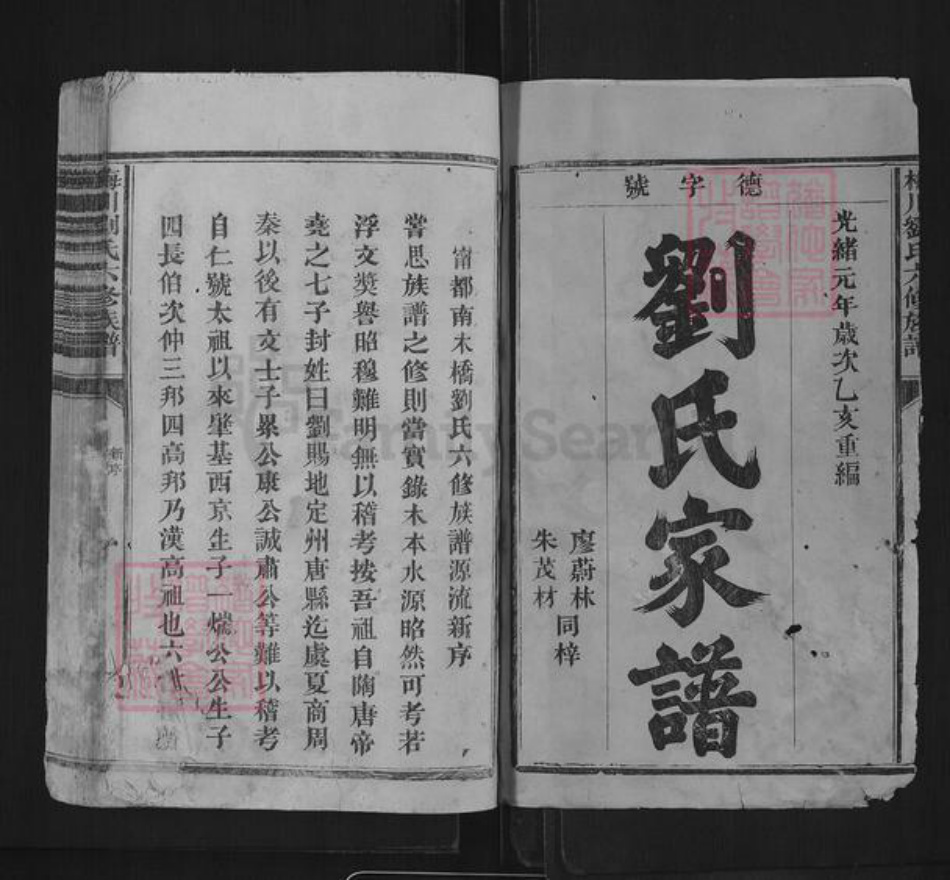 德字號
光緒元年歲次乙亥重編
劉氏家譜
廖蔚林
朱茂材
同梓
甯都南木橋劉氏六修族譜源流新序
嘗思族譜之修則當實錄木本水源昭然可考若
浮文獎譽昭穆難明無以稽考按吾祖自陶唐帝
堯之七子封姓曰劉賜地定州唐縣迄虞夏商周
秦以後有文士子累公康公誠肅公等難以稽考
自仁號太祖以來肇基西京生子一煓公公生子
四長伯次仲三邦四高邦乃漢高祖也六
梅川劉氏六修族譜
新序
FamilySearch